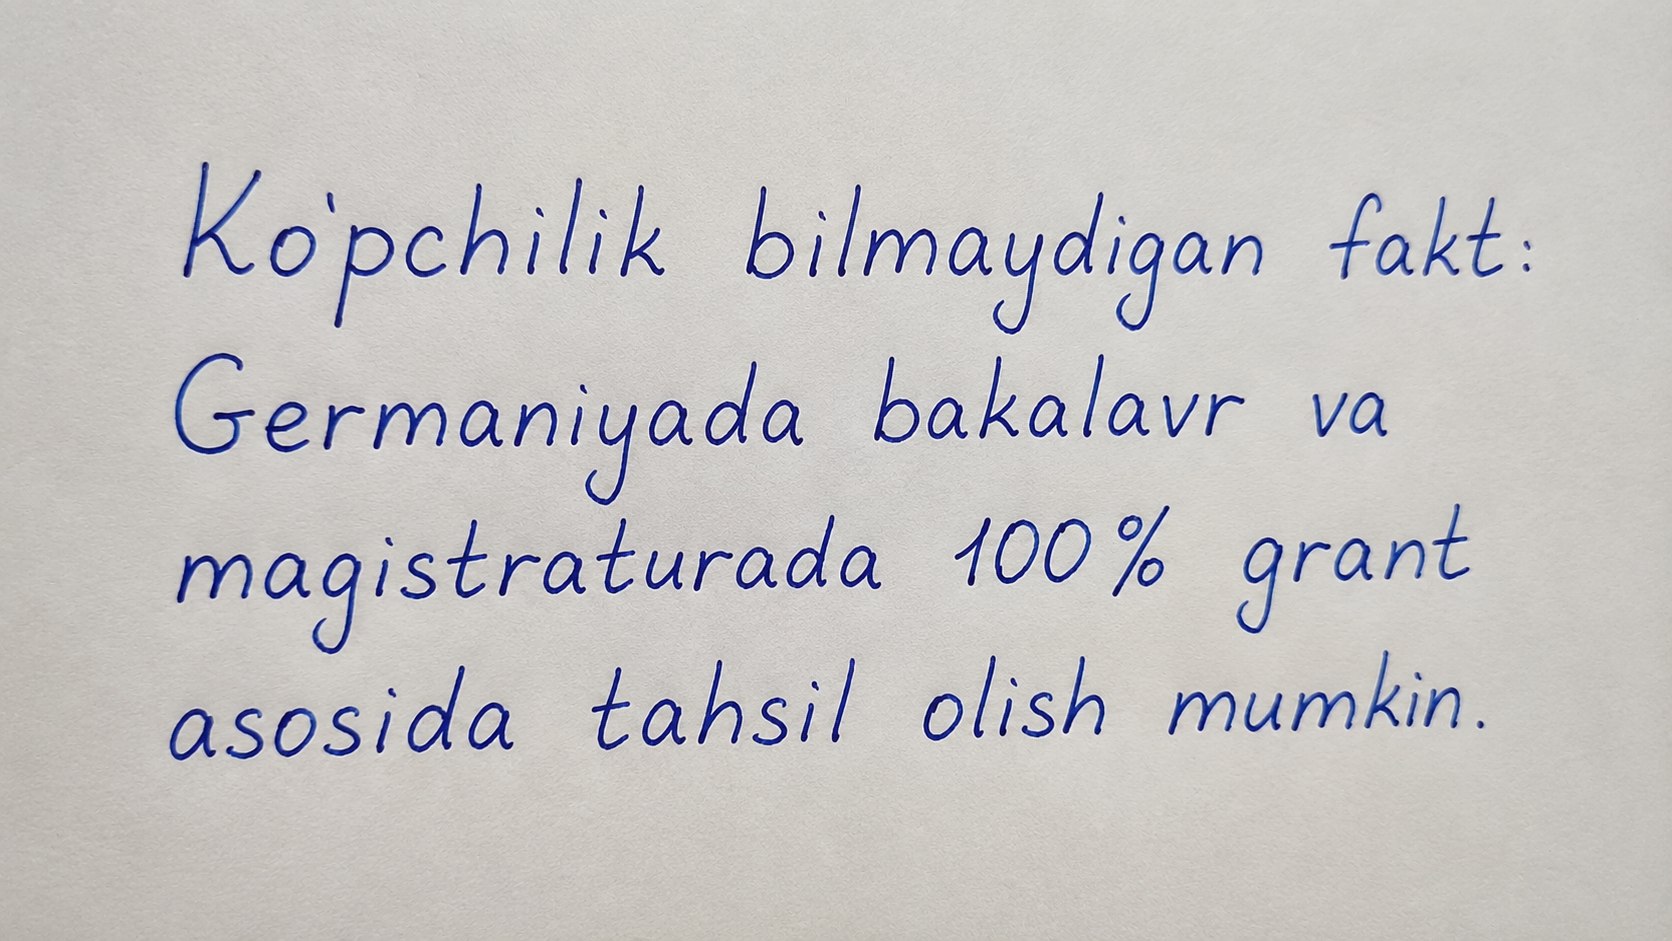 Ko'pchilik bilmaydigan fakt:
Germaniyada bakalavr va
magistraturada 100% grant
asosida tahsil olish mumkin.